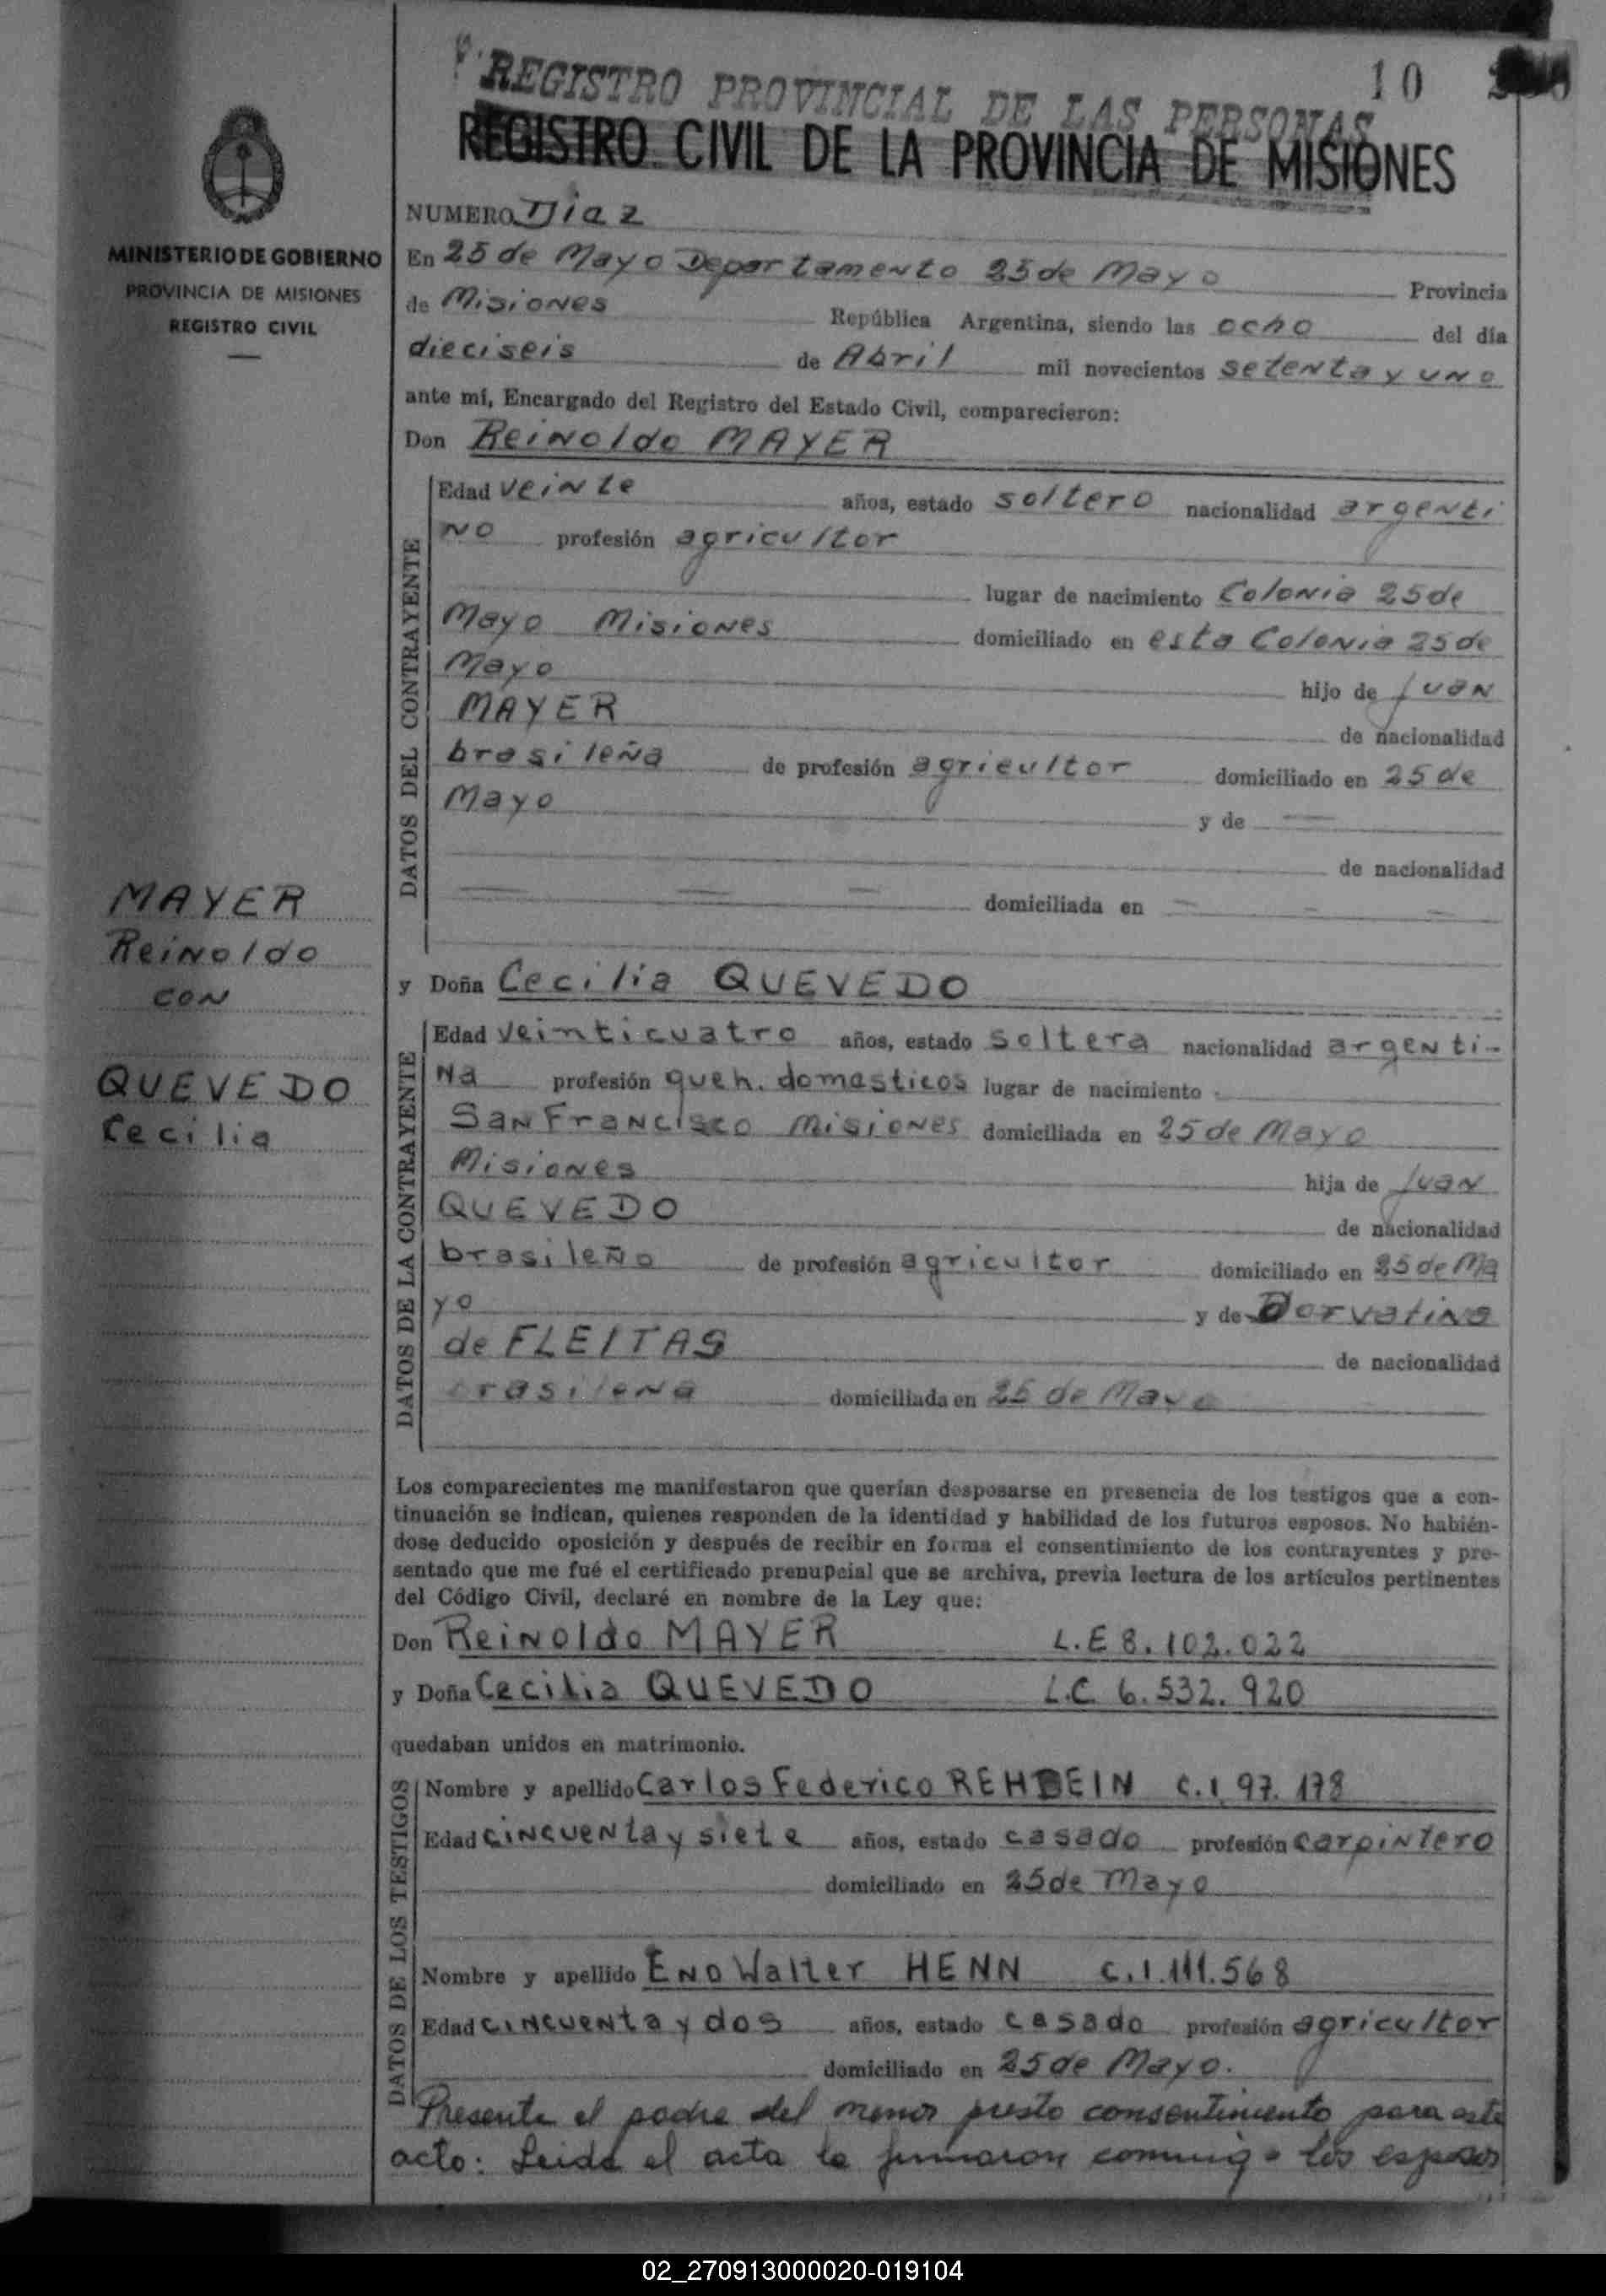 REGISTRO PROVINCIAL DE LAS PERSONAS
10
REGISTRO CIVIL DE LA PROVINCIA DE MISIONES
MINISTERIO DE GOBIERNO
PROVINCIA DE MISIONES
REGISTRO CIVIL
NUMERO Diaz
En 25 de Mayo Departamento 25 de Mayo Provincia
de Misiones República Argentina, siendo las ocho del día
dieciseis de Abril mil novecientos setenta y uno
ante mí, Encargado del Registro del Estado Civil, comparecieron:
Don Reinoldo MAYER
DATOS DEL CONTRAYENTE
Edad veinte años, estado soltero nacionalidad argenti
no profesión agricultor
lugar de nacimiento Colonia 25 de
Mayo Misiones domiciliado en esta Colonia 25 de
Mayo hijo de Juan
MAYER de nacionalidad
brasileña de profesión agricultor domiciliado en 25 de
Mayo y de
de nacionalidad
domiciliada en
MAYER
Reinoldo
con
QUEVEDO
Cecilia
y Doña Cecilia QUEVEDO
DATOS DE LA CONTRAYENTE
Edad veinticuatro años, estado soltera nacionalidad argenti-
na profesión queh. domasticos lugar de nacimiento
San Francisco Misiones domiciliada en 25 de Mayo
Misiones hija de Juan
QUEVEDO de nacionalidad
brasileño de profesión agricultor domiciliado en 25 de Ma
yo y de Dorvatina
de FLEITAS de nacionalidad
brasilena domiciliada en 25 de Mayo
Los comparecientes me manifestaron que querían desposarse en presencia de los testigos que a con-
tinuación se indican, quienes responden de la identidad y habilidad de los futuros esposos. No habién-
dose deducido oposición y después de recibir en forma el consentimiento de los contrayentes y pre-
sentado que me fué el certificado prenupcial que se archiva, previa lectura de los artículos pertinentes
del Código Civil, declaré en nombre de la Ley que:
Don Reinoldo MAYER L.E 8.102.022
y Doña Cecilia QUEVEDO L.C 6.532.920
quedaban unidos en matrimonio.
DATOS DE LOS TESTIGOS
Nombre y apellido Carlos Federico REHBEIN C.I 97.178
Edad cincuenta y siete años, estado casado profesión carpintero
domiciliado en 25 de Mayo
Nombre y apellido Eno Walter HENN C.I.111.568
Edad cincuenta y dos años, estado casado profesión agricultor
domiciliado en 25 de Mayo.
Presente el padre del menor presto consentimiento para este
acto: Leida el acta la firmaron conmigo los esposos
02_270913000020-019104